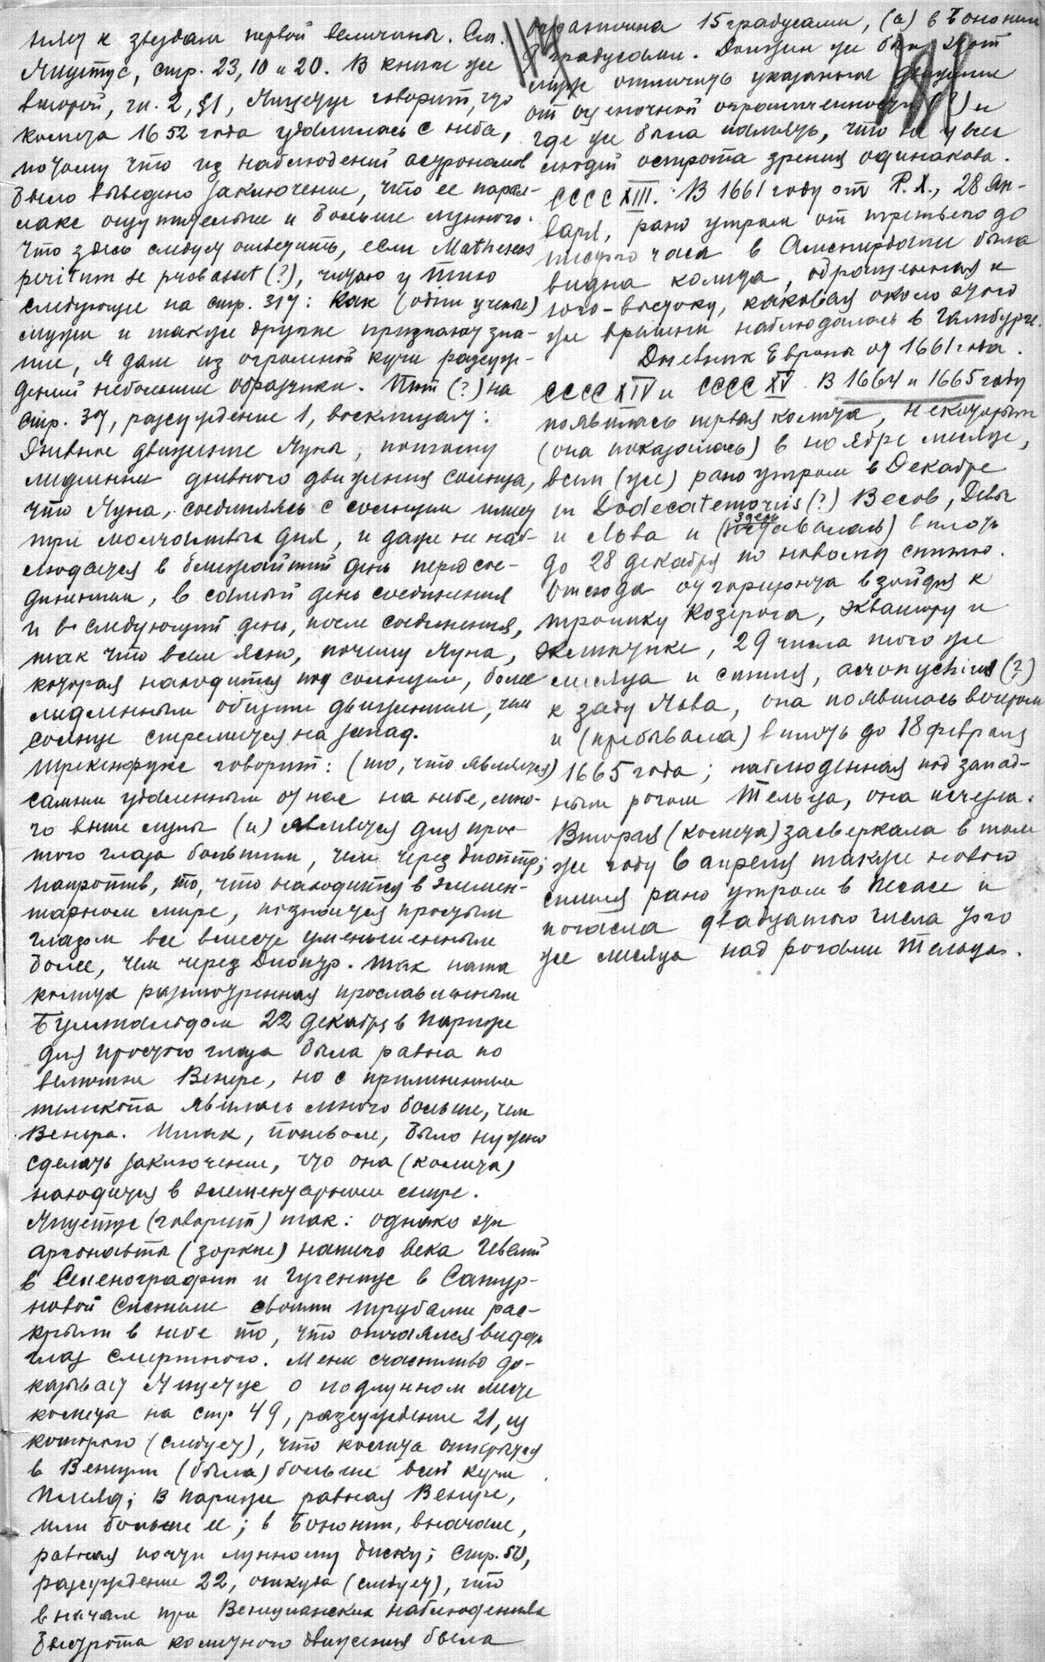 к звездам первой величины. См.
Лицетус, стр. 23, 10 и 20. В книге же
второй, гл. 2, §1, Лицетус говорит, что
комета 1652 года удалилась с неба,
потому что из наблюдений астрономов
было выведено заключение, что ее парал-
лакс ощутительнее и больше лунного.
Что здесь следует ответить, если Matheseos
peritum se probasset (?), читаю у Тихо
следующее на стр. 317: Как (одни ученые)
мужи и также другие признают зна-
ние, я дам из огромной кучи рассуж-
дений небольшие образчики. Тот (?) на
стр. 37, рассуждение 1, восклицает:
Дивное движение Луны, потому
медленнее дневного движения солнца,
что Луна, соединяясь с солнцем имеет
три молчаливых дня, и даже не наб-
людается в ближайший день перед сое-
динением, в самый день соединения
и в следующий день, после соединения,
так что всем ясно, почему Луна,
которая находится под солнцем, более
медленным общим движением, чем
солнце стремится на запад.
говорит: (то, что является)
самым удаленным от нас на небе, мно-
го выше луны (и) является для прос-
того глаза большим, чем через диоптр;
напротив, то, что находится в элемен-
тарном мире, познается простым
глазом все вместе уменьшенным
более, чем через Диоптр. Так наша
комета рассмотренная прославленным
Буллиальдом 22 декабря в Париже
для простого глаза была равна по
величине Венере, но с применением
телескопа явилась много больше, чем
Венера. Итак, поневоле, было нужно
сделать заключение, что она (комета)
находится в элементарном мире.
Лицетус (говорит) так: однако эти
аргонавты (зоркие) нашего века Гевелий
в Селенографии и Гугениус в Сатур-
новой Системе своими трубами рас-
крыли в небе то, что отчаялся видеть
глаз смертного. Менее счастливо до-
казывает Лицетус о подлунном месте
кометы на стр. 49, рассуждение 21, из
которого (следует), что комета
в Венеции (была) больше всей кучи
Плеяд; в Париже равная Венере,
или больше ее; в Бононии, вначале,
равная почти лунному диску; стр. 50,
рассуждение 22, откуда (следует), что
в начале при Венецианских наблюдениях
быстрота кометного движения была
ограничена 15 градусами, (а) в Бононии
градусами. Должен же был этот
муж отличить указанное движение
от ограниченности (?) и
где же была память, что не у всех
людей острота зрения одинакова.
CCCCXIII. В 1661 году от Р.Х., 28 Ян-
варя, рано утром от третьего до
шестого часа в Амстердаме была
видна комета, обращенная к
юго-востоку, каковая около этого
же времени наблюдалась в Гамбурге.
Дневник Европы от 1661 года.
CCCCXIV и CCCCXV. В 1664 и 1665 году
появилась первая комета, некоторым
(она показалась) в ноябре месяце,
всем (же) рано утром в Декабре
in Dodecatemoriis (?) Весов, Девы
и Льва и здесь (оставалась) вплоть
до 28 декабря по новому стилю.
Отсюда от горизонта взойдя к
тропику Козерога, экватору и
эклиптике, 29 числа того же
месяца и стиля, acronychius (?)
к заду Льва, она появилась вечером
и (пребывала) вплоть до 18 февраля
1665 года; наблюденная под запад-
ным рогом Тельца, она исчезла.
Вторая (комета) засверкала в том
же году 6 апреля также нового
стиля рано утром в Пегасе и
погасла двадцатого числа того
же месяца над рогами Тельца.